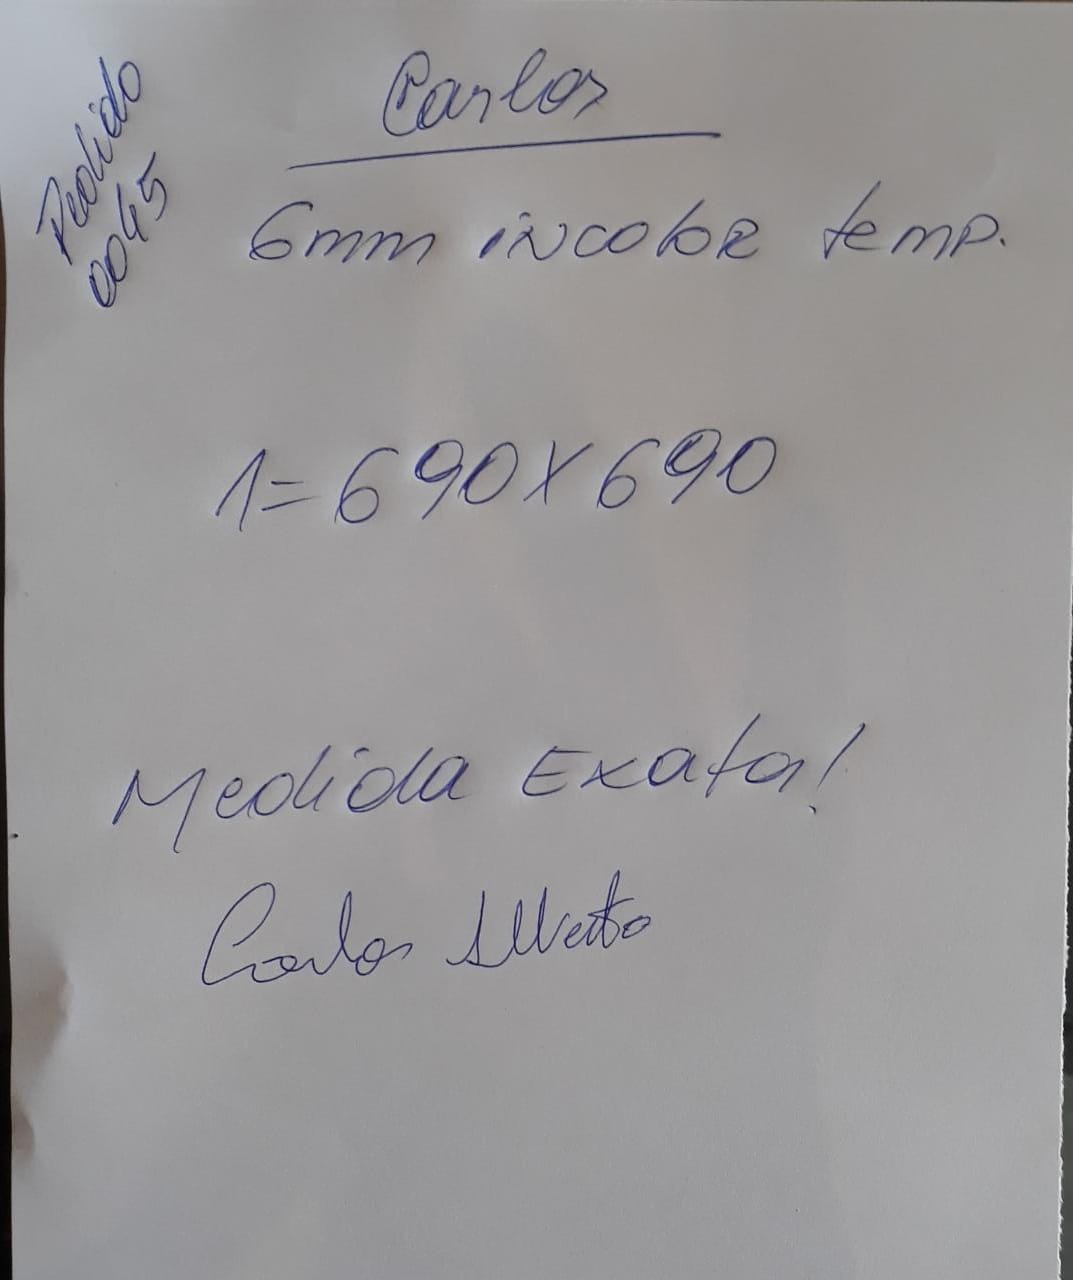 Pedido
0045
Carlos
6mm incolor temp.
1=690X690
Medida Exata!
Carlos Alberto